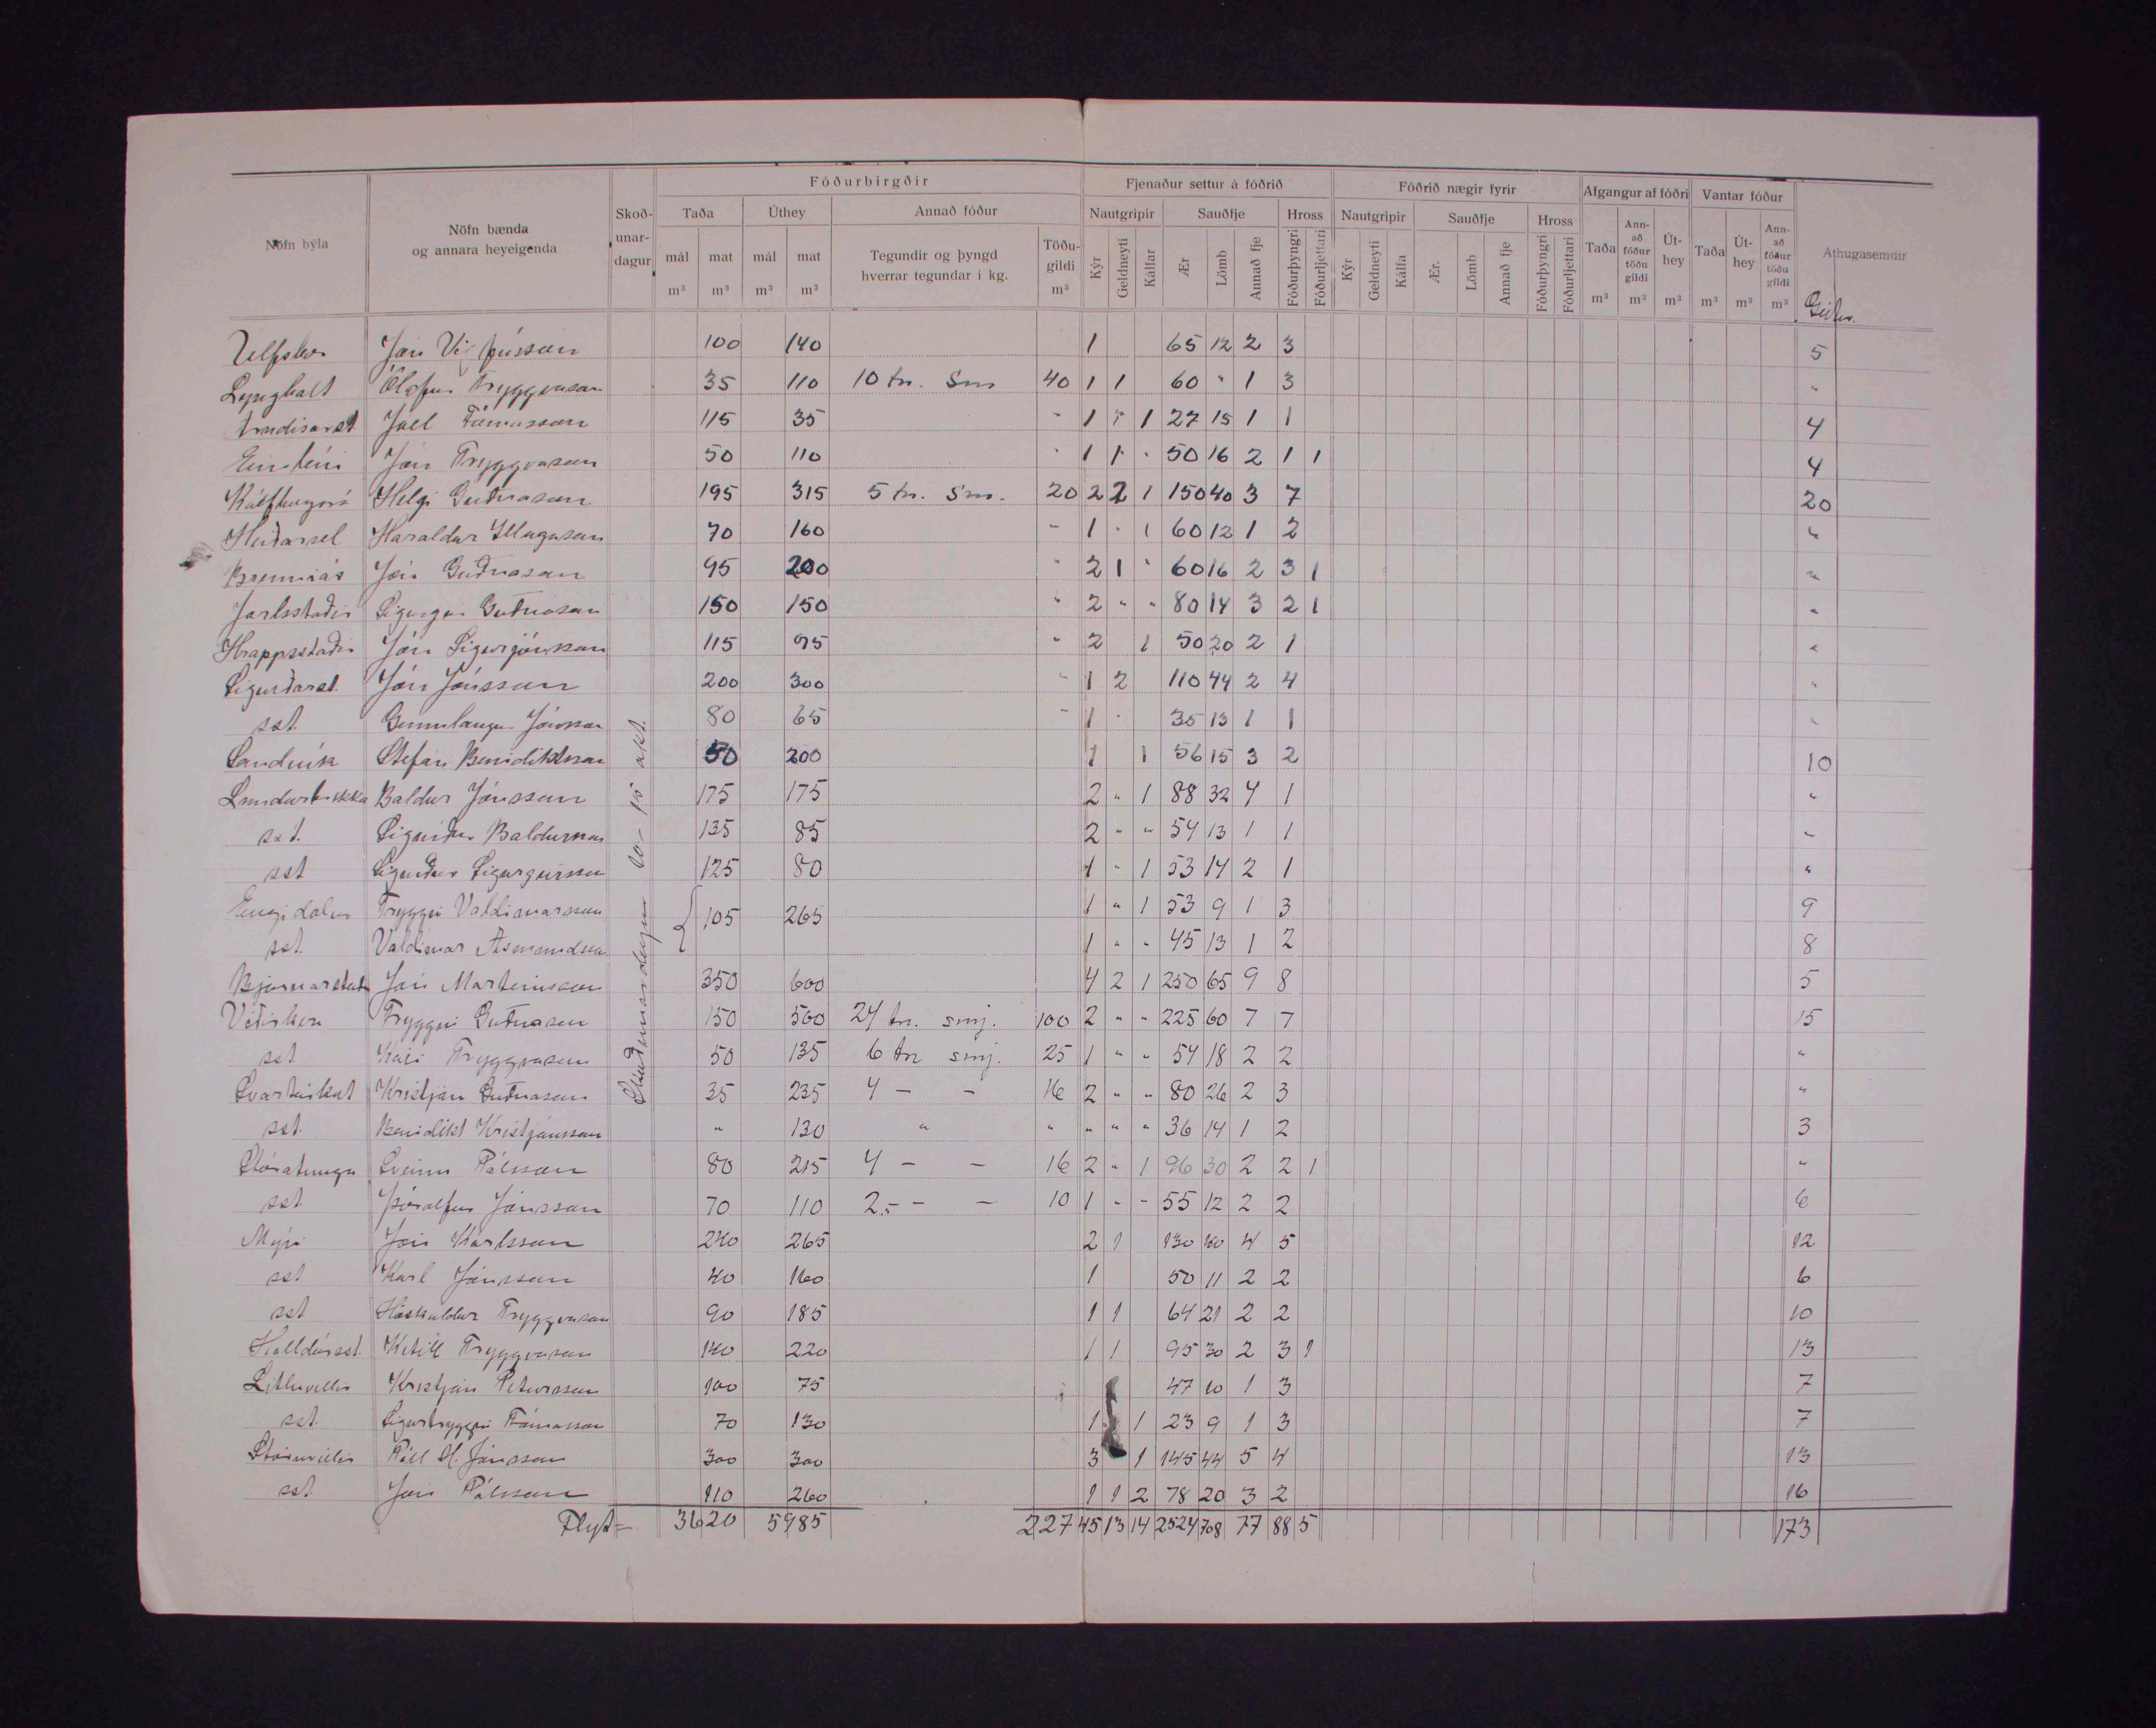 Fóðurbirgðir Fjenaður settur á fóðrið Fóðrið nægir fyrir Afgangur af fóðri Vantar fóður
Nöfn býla Nöfn bænda og annara heyeigenda Skoð-unar-dagur Taða Úthey Annað fóður Nautgripir Sauðfje Hross Nautgripir Sauðfje Hross Taða Ann-að fóður töðu gildi Út-hey Taða Út-hey Ann-að fóður töðu gildi Athugasemdir
mál mat mál mat Tegundir og þyngd hverrar tegundar í kg. Töðu-gildi Kýr Geldneyti Kálfar Ær Lömb Annað fje Fóðurþyngri Fóðurljettari Kýr Geldneyti Kálfa Ær. Lömb Annað fje Fóðurþyngri Fóðurljettari
m³ m³ m³ m³ m³ m³ m³ m³ m³ m³ m³
Jón 100 140 1 65 12 2 3 5
Ólafur Tryggvason 35 110 10 tn. 40 1 1 60 " 1 3 "
115 35 " 1 " 1 27 15 1 1 4
Jón Tryggvason 50 110 " 1 1 " 50 16 2 1 1 4
Helgi Guðnason 195 315 5 tn. 20 2 2 1 150 40 3 7 20
Heiðarsel Haraldur Illugason 70 160 " 1 " 1 60 12 1 2 "
Brenniás Jón Guðnason 95 200 " 2 1 " 60 16 2 3 1 "
Jarlsstaðir Sigurgeir Guðnason 150 150 " 2 " " 80 14 3 2 1 "
Hrappsstaðir Jón Sigurjónsson 115 95 " 2 1 50 20 2 1 "
Sigurðarst. Jón Jónsson 200 300 " 1 2 110 44 2 4 "
sst. Gunnlaugur Jónsson 80 65 " 1 " 35 13 1 1 "
Sandvík Stefán Benidiktsson 50 200 1 1 56 15 3 2 10
Lundarbrekka Baldur Jónsson 175 175 2 " 1 88 32 4 1 "
sst. Sigurður Baldursson 135 85 2 " " 54 13 1 1 "
sst Sigurður Sigurgeirsson 125 80 1 " 1 53 14 2 1 "
Engidalur Tryggvi Valdimarsson 105 265 1 " 1 53 9 1 3 9
sst. Valdimar Ásmundsson 1 " " 45 13 1 2 8
Jón Marteinsson 350 600 4 2 1 250 65 9 8 5
Víðiker Tryggvi Guðnason 150 500 24 tn. smj. 100 2 " " 225 60 7 7 15
sst Kári Tryggvason 50 135 6 tn smj. 25 1 " " 54 18 2 2 "
Svartárkot Kristján Guðnason 35 235 4 – – 16 2 " " 80 26 2 3 "
sst. Benidikt Kristjánsson " 130 " " " " " 36 14 1 2 3
Stóratunga Sveinn Pálsson 80 215 4 – – 16 2 " 1 96 30 2 2 1 "
sst. Þórólfur Jónsson 70 110 2.- – – 10 1 " " 55 12 2 2 6
Mýri Jón Karlsson 240 265 2 1 130 40 4 5 12
sst Karl Jónsson 40 160 1 50 11 2 2 6
sst Höskuldur Tryggvason 90 185 1 1 64 21 2 2 10
Halldórsst. Ketill Tryggvason 140 220 1 1 95 30 2 3 1 13
Litluvellir Kristján Pétursson 100 75 47 10 1 3 7
sst. Sigurtryggvi Tómasson 70 130 1 1 23 9 1 3 7
Stóruvellir Páll H. Jónsson 300 300 3 1 145 44 5 4 13
sst. Jón Pálsson 110 260 1 1 2 78 20 3 2 16
Flyt= 3620 5985 227 45 13 14 2524 708 77 88 5 173
Skoðunardagur 10-15 okt.